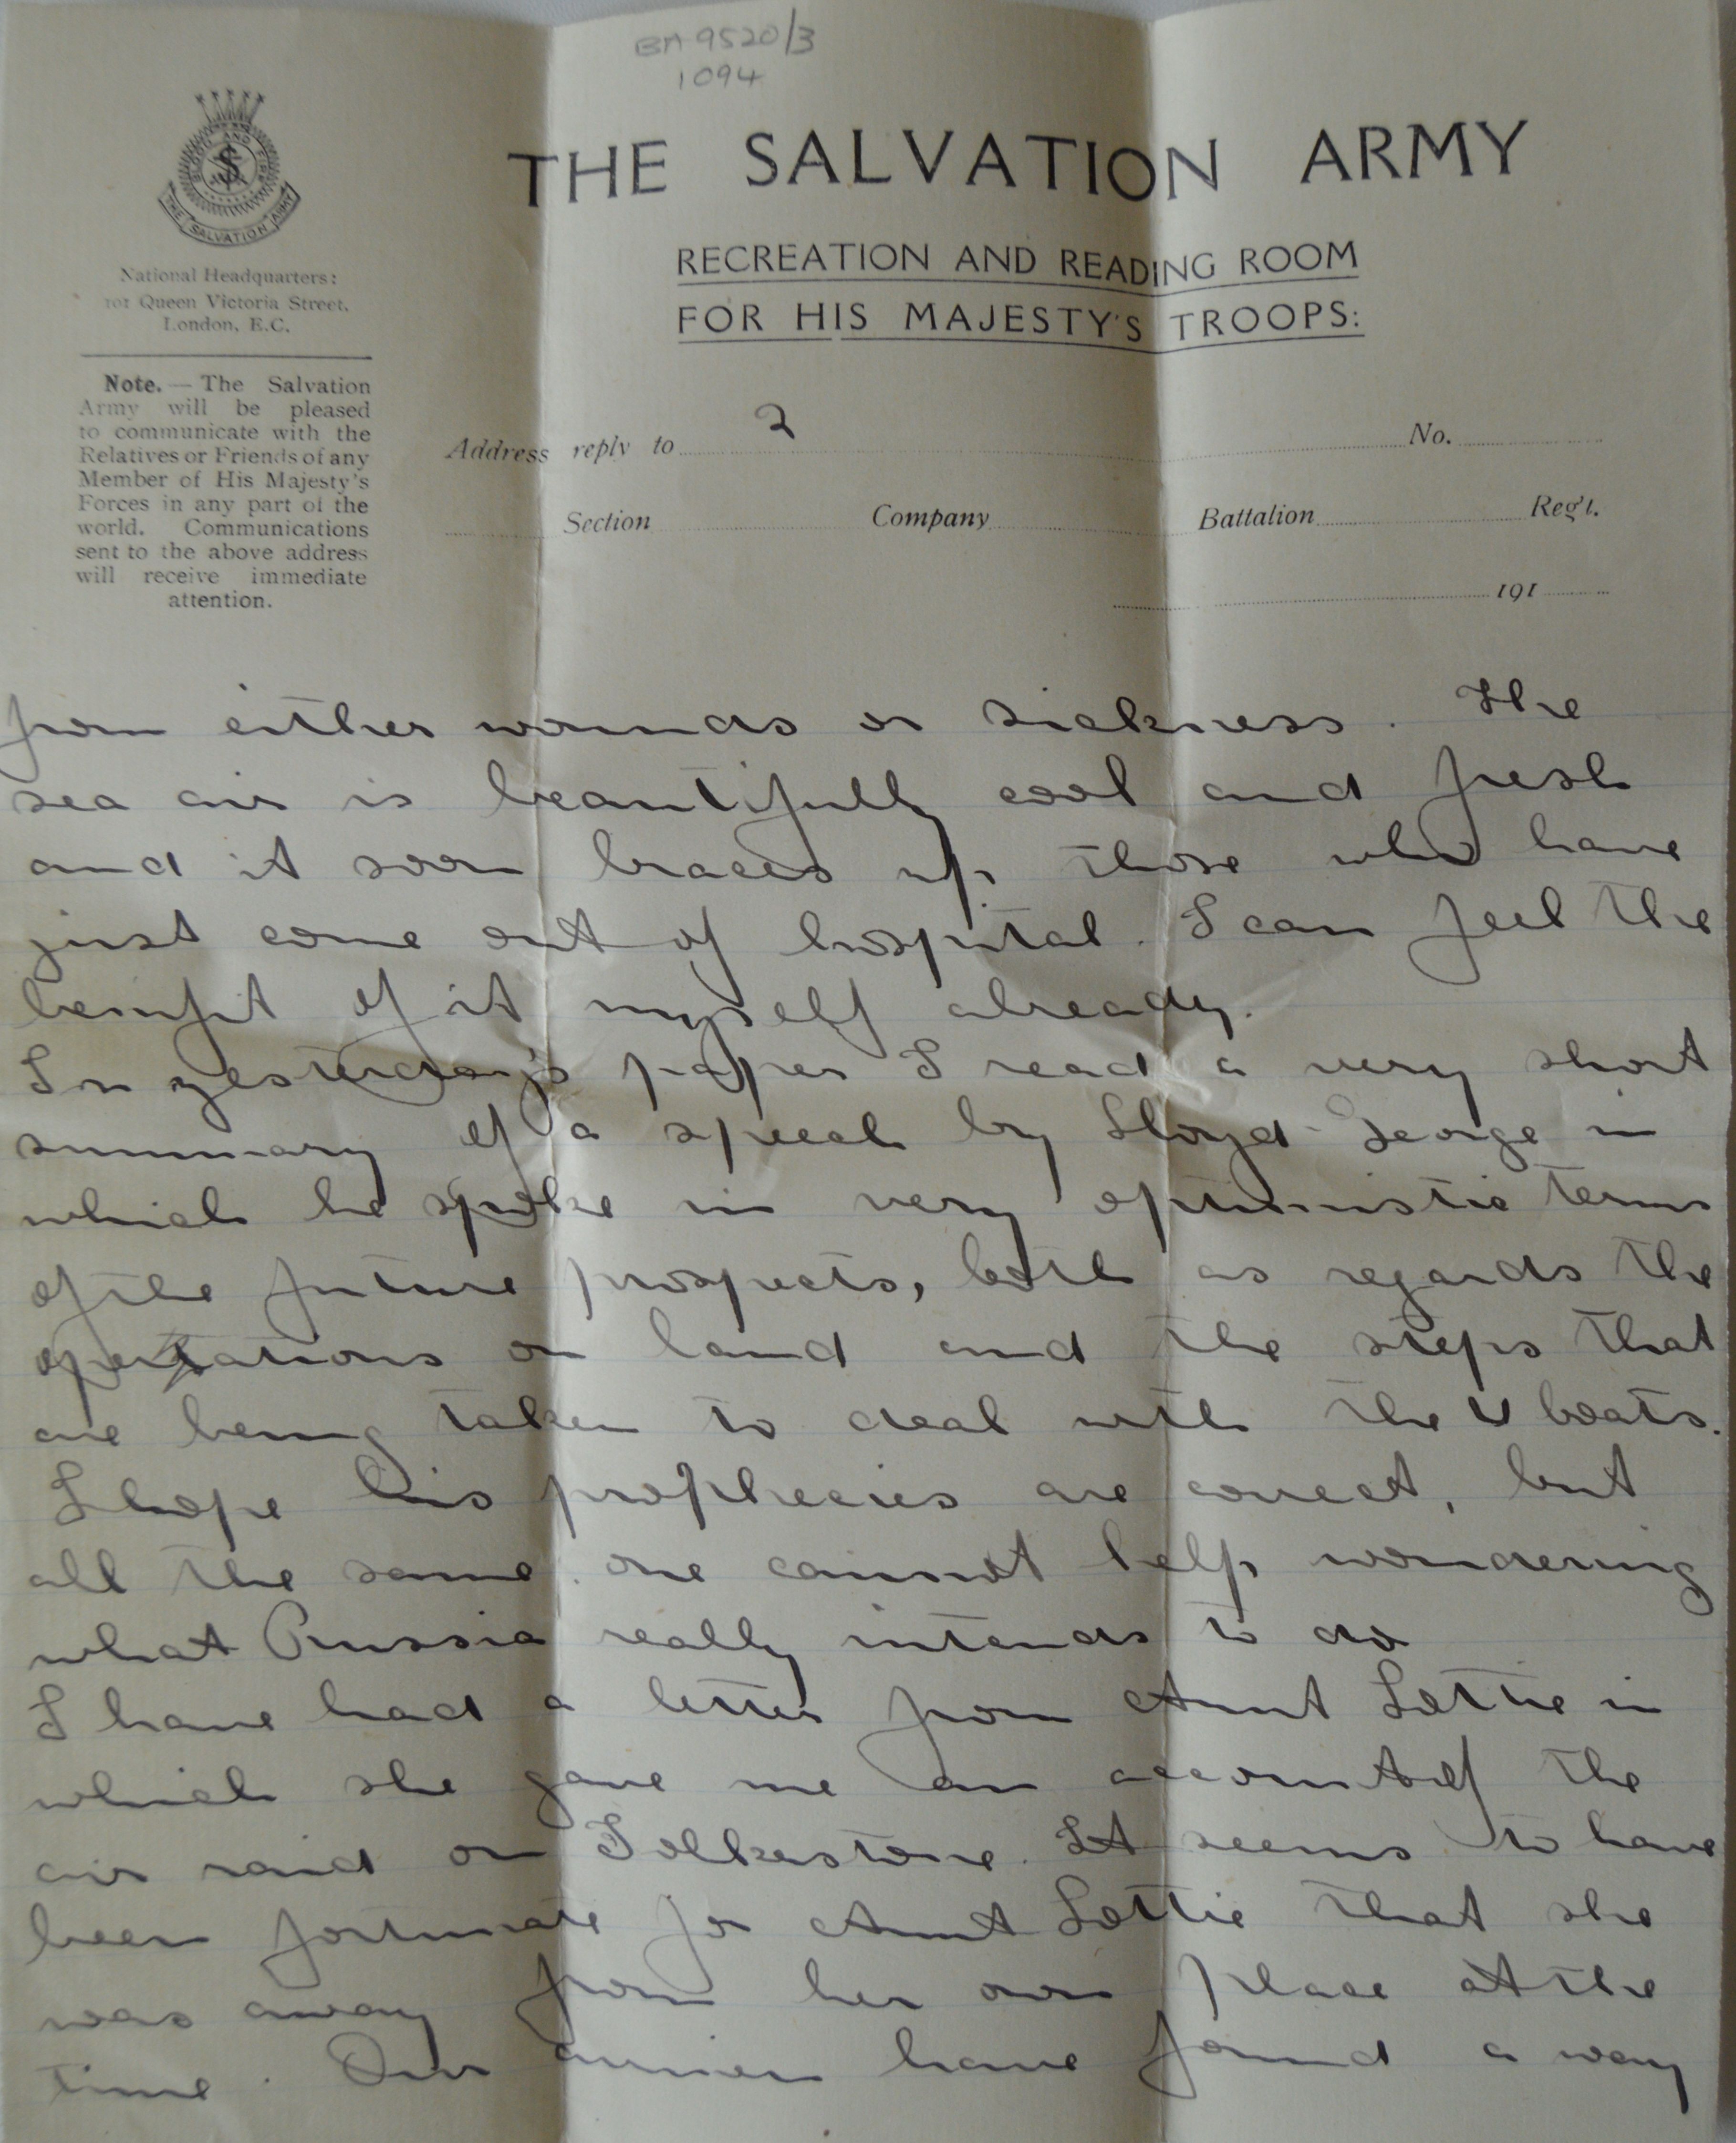 BA 9520/3
1094
BLOOD AND FIRE
THE SALVATION ARMY
National Headquarters:
101 Queen Victoria Street,
London, E.C.
Note. — The Salvation
Army will be pleased
to communicate with the
Relatives or Friends of any
Member of His Majesty's
Forces in any part of the
world. Communications
sent to the above address
will receive immediate
attention.
THE SALVATION ARMY
RECREATION AND READING ROOM
FOR HIS MAJESTY'S TROOPS:
Address reply to 2 No.
Section Company Battalion Reg't.
191
from either wounds or sickness. The
sea air is beautifully cool and fresh
and it soon braces up those who have
just come out of hospital. I can feel the
benifit of it myself already.
In yesterday's paper I read a very short
summary of a speech by Lloyd-George in
which he spoke in very optimistic terms
of the future prospects, both as regards the
operations on land and the steps that
are being taken to deal with the U boats.
I hope his prophecies are correct, but
all the same one cannot help wondering
what Russia really intends to do
I have had a letter from Aunt Lottie in
which she gave me an account of the
air raid on Folkestone. It seems to have
been fortunate for Aunt Lottie that she
was away from her own place at the
time. Our airmen have found a way